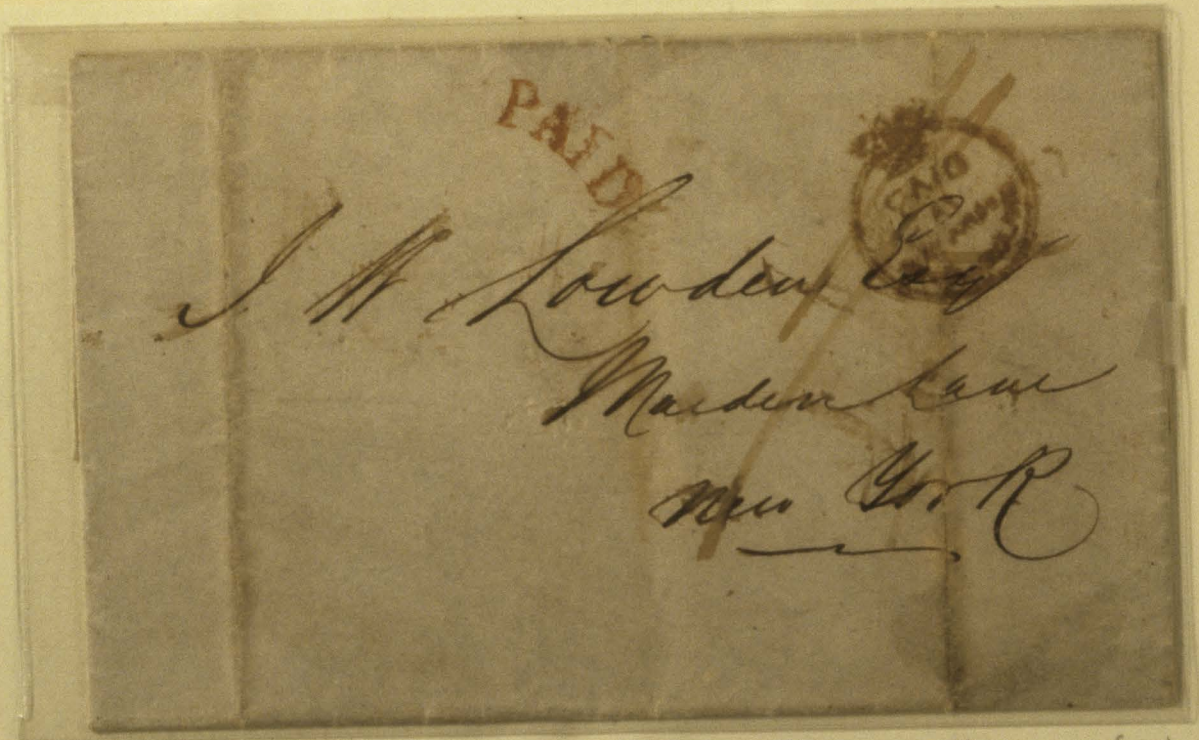 PAID
PAID
J W Lowden Esq
Maiden Lane
New York